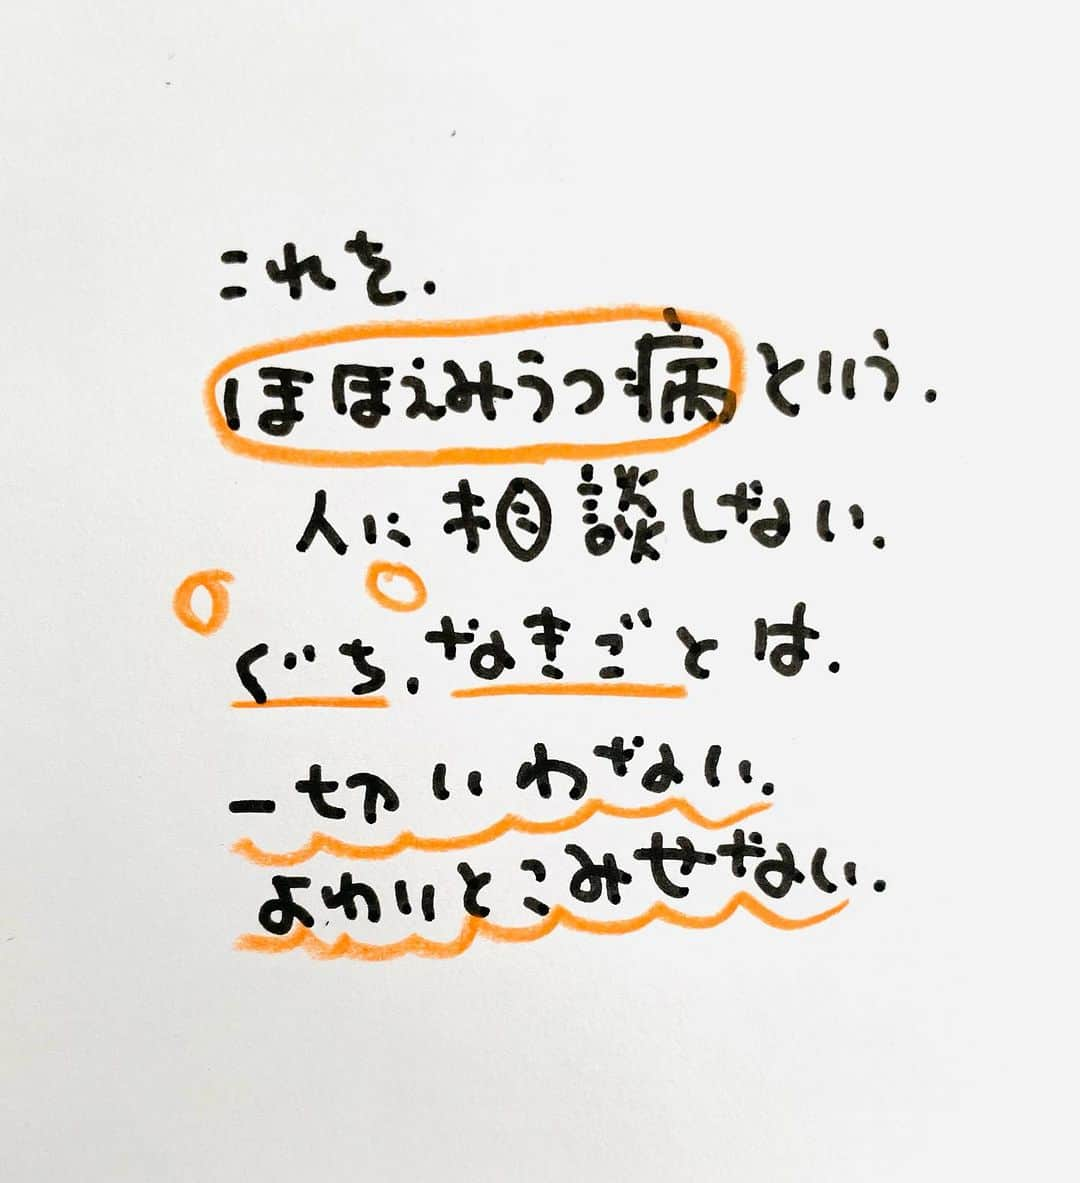 これを.
ほほえみうつ病という.
人に相談しない.
ぐち.なきごとは.
一切いわない.
よわいとこみせない.